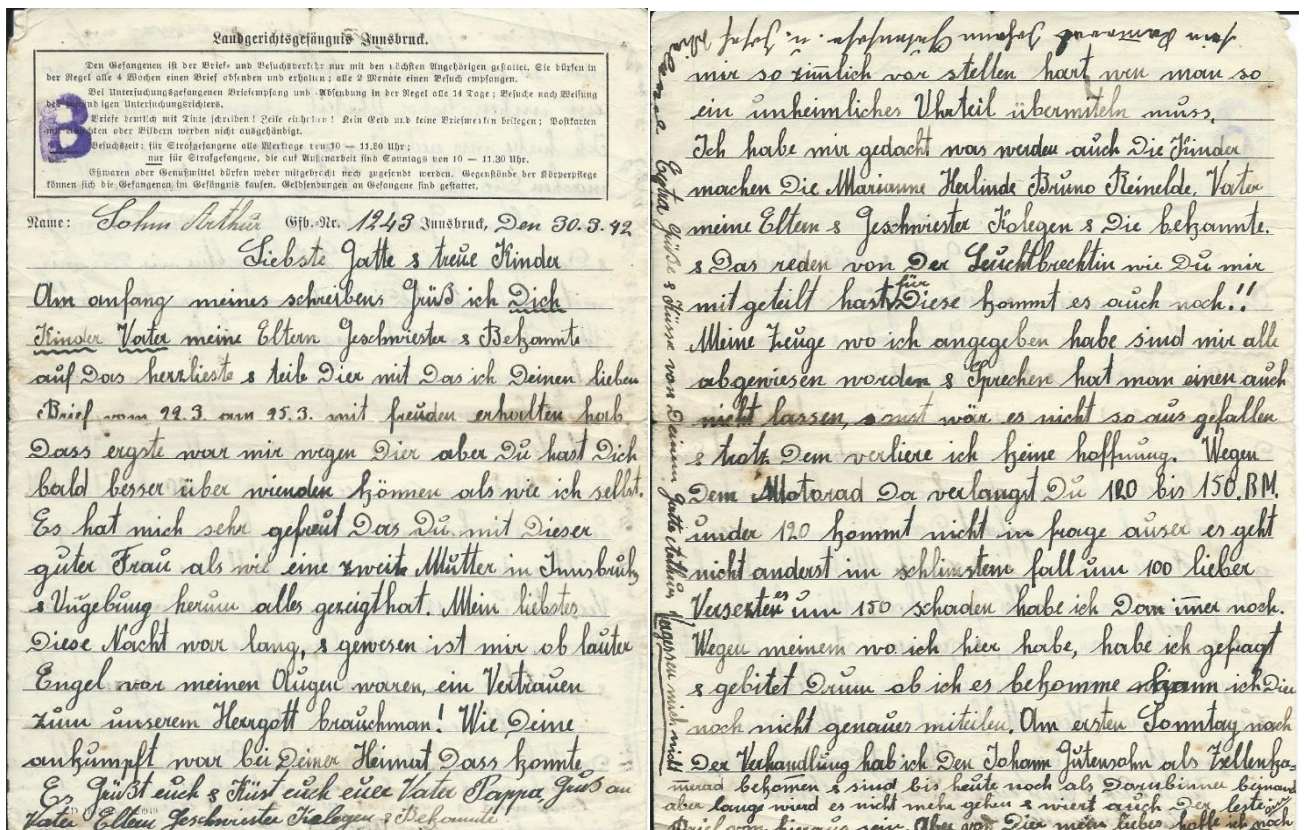 Landgerichtsgefängnis Innsbruck.
Den Gefangenen ist der Brief- und Besuchsverkehr nur mit den nächsten Angehörigen gestattet. Sie dürfen in
der Regel alle 4 Wochen einen Brief absenden und erhalten; alle 2 Monate einen Besuch empfangen.
Bei Untersuchungsgefangenen Briefempfang und Absendung in der Regel alle 14 Tage; Besuche nach Weisung
des zuständigen Untersuchungsrichters.
Briefe deutlich mit Tinte schreiben! Zeile einhalten! Kein Geld und keine Briefmarken beilegen; Postkarten
mit Ansichten oder Bildern werden nicht ausgehändigt.
Besuchszeit: für Strafgefangene alle Werktage von 10 — 11.30 Uhr;
nur für Strafgefangene, die auf Außenarbeit sind Sonntags von 10 — 11.30 Uhr.
Eßwaren oder Genußmittel dürfen weder mitgebracht noch zugesendet werden. Gegenstände der Körperpflege
können sich die Gefangenen im Gefängnis kaufen. Geldsendungen an Gefangene sind gestattet.
B
Name: Sohm Arthur Gfb.-Nr. 1243 Innsbruck, Den 30.3.42
Liebste Gatte & treue Kinder
Am anfang meines schreibens Grüß ich Dich
Kinder Vater meine Eltern Geschwiester & Bekannte
auf Das herzlieste & teile Dier mit Das ich Deinen lieben
Brief vom 22.3. am 25.3. mit freuden erhalten hab
Dass ergste war mir wegen Dier aber Du hast Dich
bald besser über wienden können als wie ich selbst.
Es hat mich sehr gefreut Das Du mit Dieser
guter Frau als wie eine zweite Mutter in Innsbruk
& Umgebung herum alles gezeigt hat. Mein liebstes
Diese Nacht war lang, & gewesen ist mir ob lauter
Engel vor meinen Augen waren, ein Vertrauen
zum unserem Herrgott brauchman! Wie Deine
ankumpft war bei Deiner Heimat Dass konnte
Es Grüßt euch & Küst euch euer Vater Pappa, Grus an
Vater Eltern Geschwiester Kolegen & Bekannte
mir so zimlich vor stellen hart wen man so
ein unheimliches Uhrteil übermiteln muss,
Ich habe mir gedacht was werden auch Die Kinder
machen Die Marianne Herlinde Bruno Reinelde, Vater
meine Eltern & Geschwiester Kolegen & Die bekannte.
& Das reden von Der Leuchtbrechtin wie Du mir
mitgeteilt hast für Diese kommt es auch noch!!
Meine Zeuge wo ich angegeben habe sind mir alle
abgewiesen worden & Sprechen hat man einen auch
nicht lassen, sonst wär es nicht so aus gefallen
& trotz Dem verliere ich keine hoffnung. Wegen
Dem Motorad Da verlangst Du 120 bis 150.RM.
under 120 kommt nicht in frage auser es geht
nicht anderst im schlimstem fall um 100 lieber
Versezten es um 150 schaden habe ich Dan imer noch.
Wegen meinem wo ich hier habe, habe ich gefragt
& gebitet Drum ob ich es bekomme kann ich Dier
noch nicht genaues miteilen. Am ersten Sonntag nach
Der Verhandlung hab ich Den Johann Gutensohn als Zellenka-
merad bekommen & sind bis heute noch als Dornbirner beinand
aber lange wierd es nicht mehr gehen & wiert auch Der leste
Brief von hieraus sein. Aber von Dier mein lieber hoffe ich noch
Extra Grüße & Küsse von Deinem Gatte Arthur Vergessen mich nicht